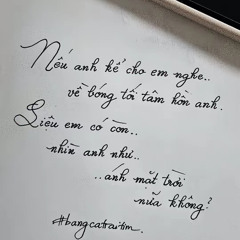 Nếu anh kể cho em nghe..
về bóng tối tâm hồn anh.
Liệu em có còn..
nhìn anh như..
..ánh mặt trời
nữa không?
#bangcatraitim.